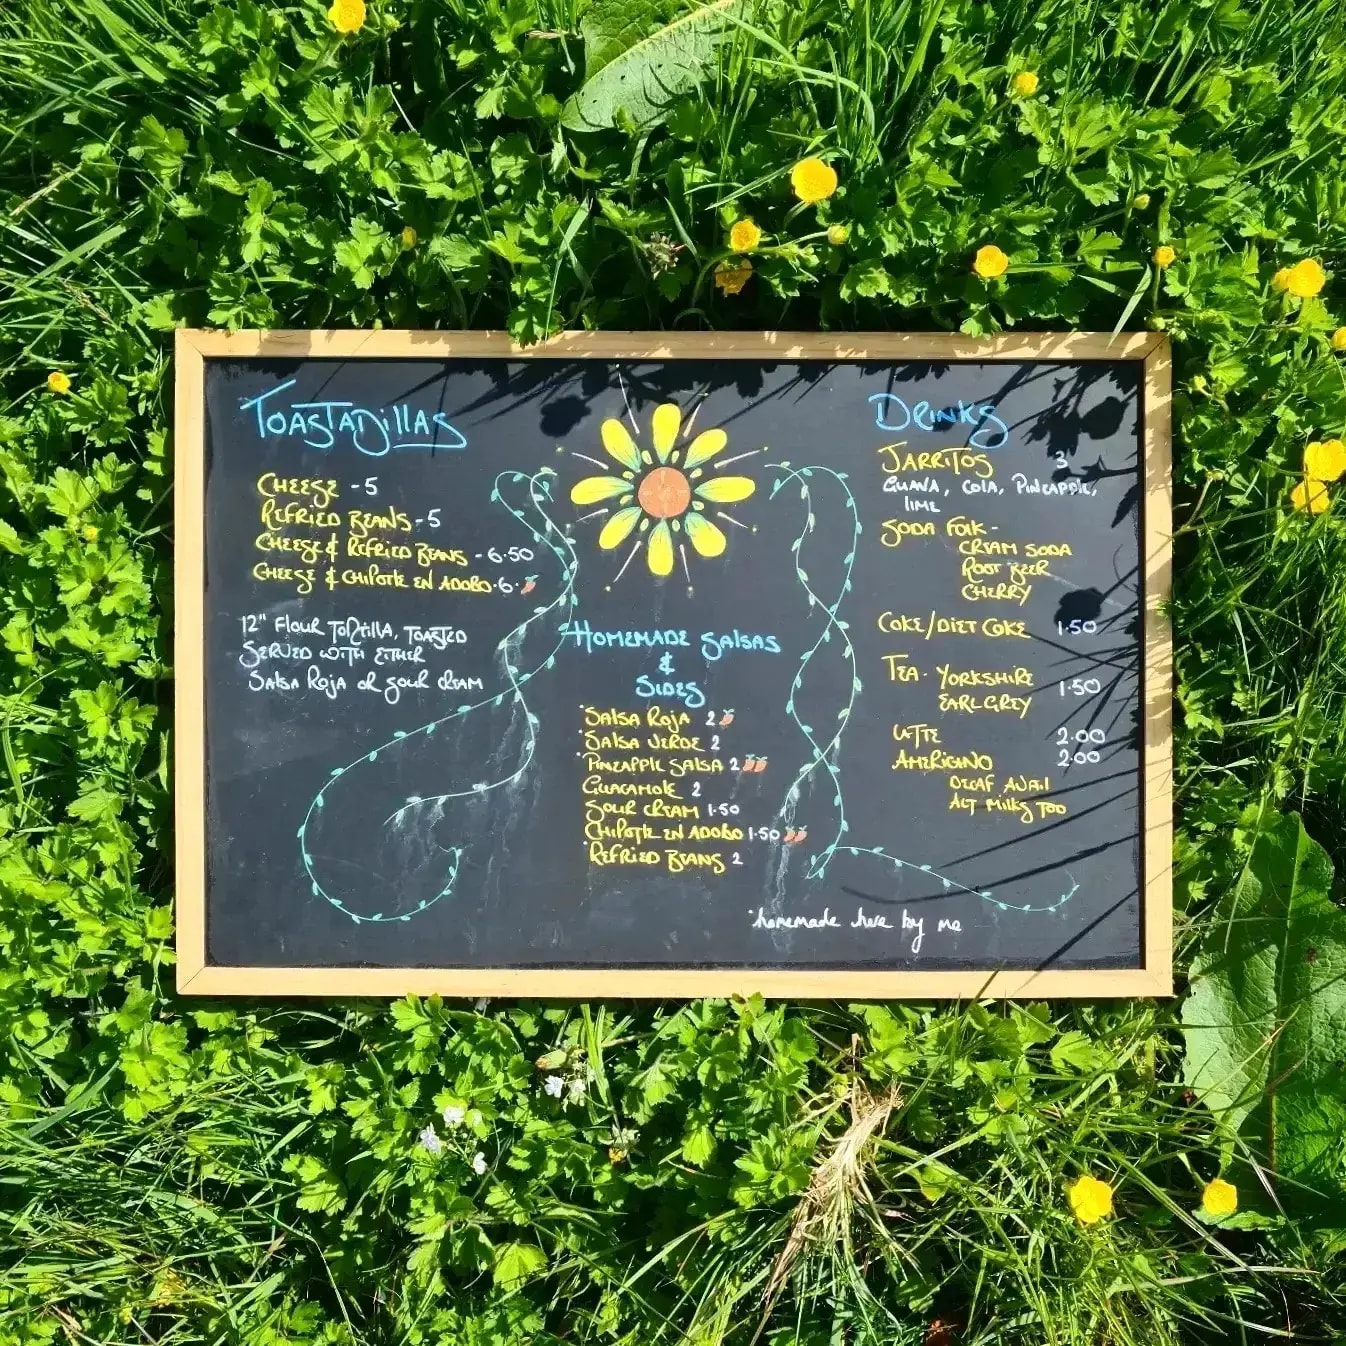 TOASTADILLAS
CHEESE - 5
REFRIED BEANS - 5
CHEESE & REFRIED BEANS - 6.50
CHEESE & CHIPOTLE EN ADOBO - 6.
12" FLOUR TORTILLA, TOASTED
SERVED WITH EITHER
SALSA ROJA OR SOUR CREAM
HOMEMADE SALSAS
&
SIDES
*SALSA ROJA 2
*SALSA VERDE 2
*PINEAPPLE SALSA 2
GUACAMOLE 2
SOUR CREAM 1.50
CHIPOTLE EN ADOBO 1.50
*REFRIED BEANS 2
*homemade here by me
DRINKS
JARRITOS 3
GUAVA, COLA, PINEAPPLE,
LIME
SODA FOLK -
CREAM SODA
ROOT BEER
CHERRY
COKE/DIET COKE 1.50
TEA - YORKSHIRE
EARL GREY 1.50
LATTE 2.00
AMERICANO 2.00
DECAF AVAIL
ALT MILKS TOO